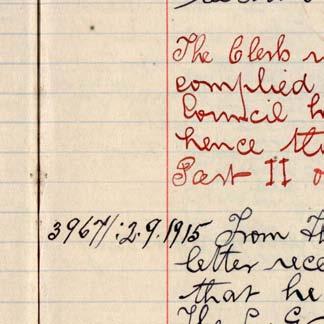 The Clerk
complied
Council h
hence th
Part II o
3967/:2.9.1915 From Th
letter rece
that he